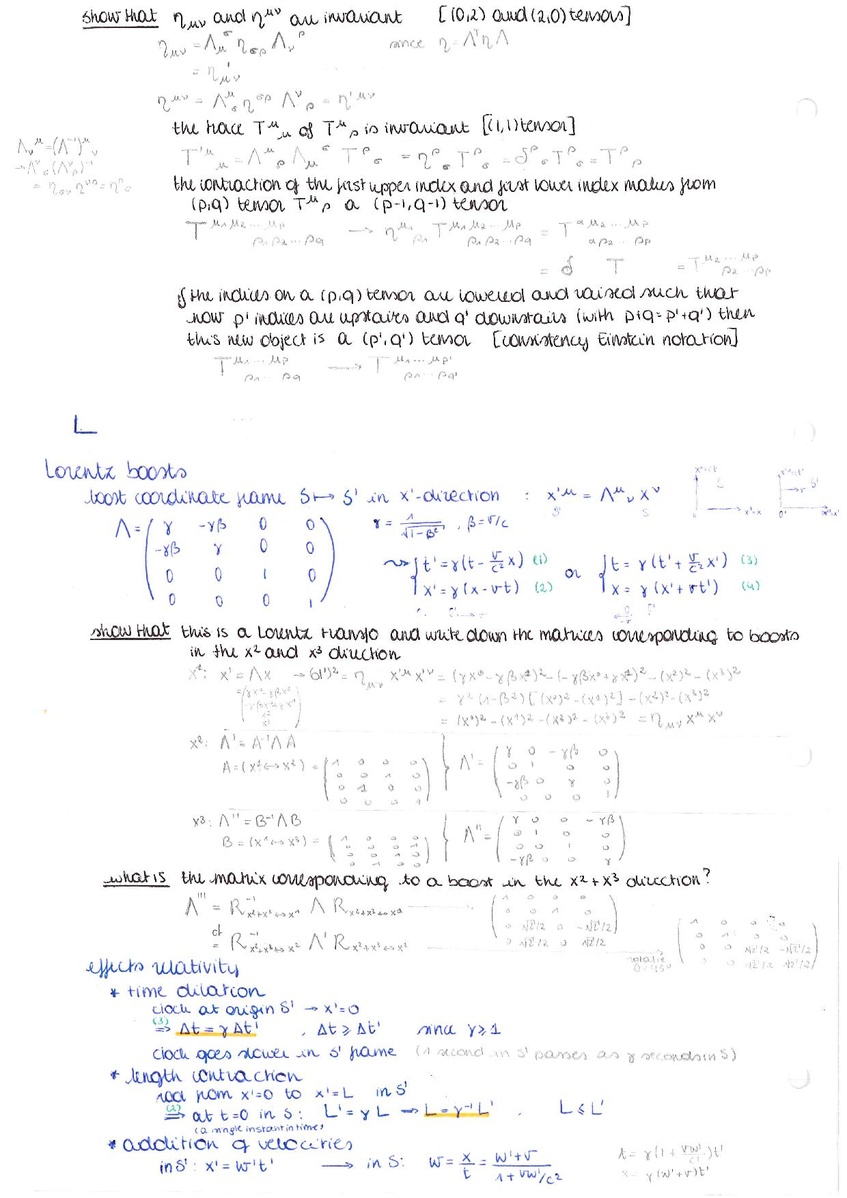 show that η_μν and η^μν are invariant [(0,2) and (2,0) tensors]
η_μν = Λ_μ^σ η_σρ Λ_ν^ρ since η = Λ^T η Λ
= η'_μν
η^μν = Λ^μ_σ η^σρ Λ^ν_ρ = η'^μν
the trace T^μ_μ of T^μ_ρ is invariant [(1,1) tensor]
Λ_ν^μ = (Λ^-1)^μ_ν
T'^μ_μ = Λ^μ_ρ Λ_μ^σ T^ρ_σ = η^ρ_σ T^ρ_σ = δ^ρ_σ T^ρ_σ = T^ρ_ρ
the contraction of the first upper index and first lower index makes from
(p,q) tensor T^μ_ρ a (p-1,q-1) tensor
T^μ1μ2...μp_ρ1ρ2...ρq → η^μ1_ρ1 T^μ1μ2...μp_ρ1ρ2...ρq = T^αμ2...μp_αρ2...ρp
= δ T = T^μ2...μp_ρ2...ρp
if the indices on a (p,q) tensor are lowered and raised such that
now p' indices are upstairs and q' downstairs (with p+q=p'+q') then
this new object is a (p',q') tensor [consistency Einstein notation]
T^μ1...μp_ρ1...ρq → T^μ1...μp'_ρ1...ρq'
Lorentz boosts
boost coordinate frame S ↦ S' in x'-direction : x'^μ = Λ^μ_ν x^ν
S' S
Λ = ( γ -γβ 0 0 γ = 1/√(1-β²) , β = v/c
-γβ γ 0 0
0 0 1 0
0 0 0 1 )
{ t' = γ(t - v/c² x) (1) or { t = γ(t' + v/c² x') (3)
x' = γ(x - vt) (2) x = γ(x' + vt') (4)
show that this is a Lorentz transfo and write down the matrices corresponding to boosts
in the x² and x³ direction
x²: x' = Λx → (d')² = η_μν x'^μ x'^ν = (γx⁰ - γβx¹)² - (-γβx⁰ + γx¹)² - (x²)² - (x³)²
= γ²(1-β²)[(x⁰)² - (x¹)²] - (x²)² - (x³)²
= (x⁰)² - (x¹)² - (x²)² - (x³)² = η_μν x^μ x^ν
x²: Λ' = A⁻¹ΛA
A = (x¹↔x²) = ( 1 0 0 0
0 0 1 0
0 1 0 0
0 0 0 1 )
Λ' = ( γ 0 -γβ 0
0 1 0 0
-γβ 0 γ 0
0 0 0 1 )
x³: Λ'' = B⁻¹ΛB
B = (x¹↔x³) =
Λ'' = ( γ 0 0 -γβ
0 1 0 0
0 0 1 0
-γβ 0 0 γ )
what is the matrix corresponding to a boost in the x²+x³ direction?
Λ''' = R⁻¹ Λ R
( 1 0 0 0
0 0 1 0
0 √2/2 0 -√2/2
0 √2/2 0 √2/2 )
or
= R⁻¹ Λ' R
( 1 0 0 0
0 1 0 0
0 0 √2/2 -√2/2
0 0 √2/2 √2/2 )
effects relativity
* time dilation
clock at origin S' → x'=0
(3) ⇒ Δt = γ Δt' , Δt ⩾ Δt' since γ ⩾ 1
clock goes slower in S' frame (1 second in S' passes as γ seconds in S)
* length contraction
rod from x'=0 to x'=L in S'
(2) ⇒ at t=0 in S: L' = γ L → L = γ⁻¹ L' . L ⩽ L'
(a single instant in time)
* addition of velocities
in S': x' = w't' → in S: w = x/t = (w'+v)/(1+vw'/c²)
t = γ(1 + vw'/c²)t'
x = γ(w'+v)t'